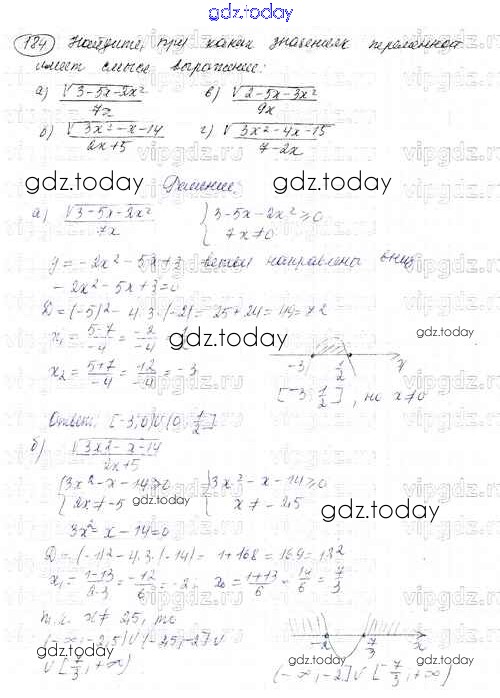 gdz.today
184 Найдите, при каких значениях переменной
имеет смысл выражение:
а) √3-5x-2x² / 7x в) √2-5x-3x² / 9x
б) √3x²-x-14 / 2x+5 г) √3x²-4x-15 / 7-2x
gdz.today gdz.today
Решение.
а) √3-5x-2x² / 7x { 3-5x-2x² ≥ 0
7x ≠ 0
y = -2x² - 5x + 3 ветви направлены вниз
-2x² - 5x + 3 = 0
D = (-5)² - 4·3·(-2) = 25 + 24 = 49 = 7²
x₁ = 5-7 / -4 = -2 / -4 = 1/2
x₂ = 5+7 / -4 = 12 / -4 = -3
gdz.today gdz.today
-3 1/2 x
[-3; 1/2], но x ≠ 0
Ответ: [-3;0)∪(0; 1/2]
б) √3x²-x-14 / 2x+5
{ 3x²-x-14 ≥ 0 { 3x²-x-14 ≥ 0
2x ≠ -5 x ≠ -2,5
gdz.today gdz.today
3x² - x - 14 = 0
D = (-1)² - 4·3·(-14) = 1 + 168 = 169 = 13²
x₁ = 1-13 / 2·3 = -12 / 6 = -2; x₂ = 1+13 / 6 = 14 / 6 = 7/3
т.к. x ≠ 2,5, то
(-∞; -2,5)∪(-2,5; -2]∪
∪[7/3; +∞)
-2 7/3 x
(-∞; -2]∪[7/3; +∞)
gdz.today gdz.today